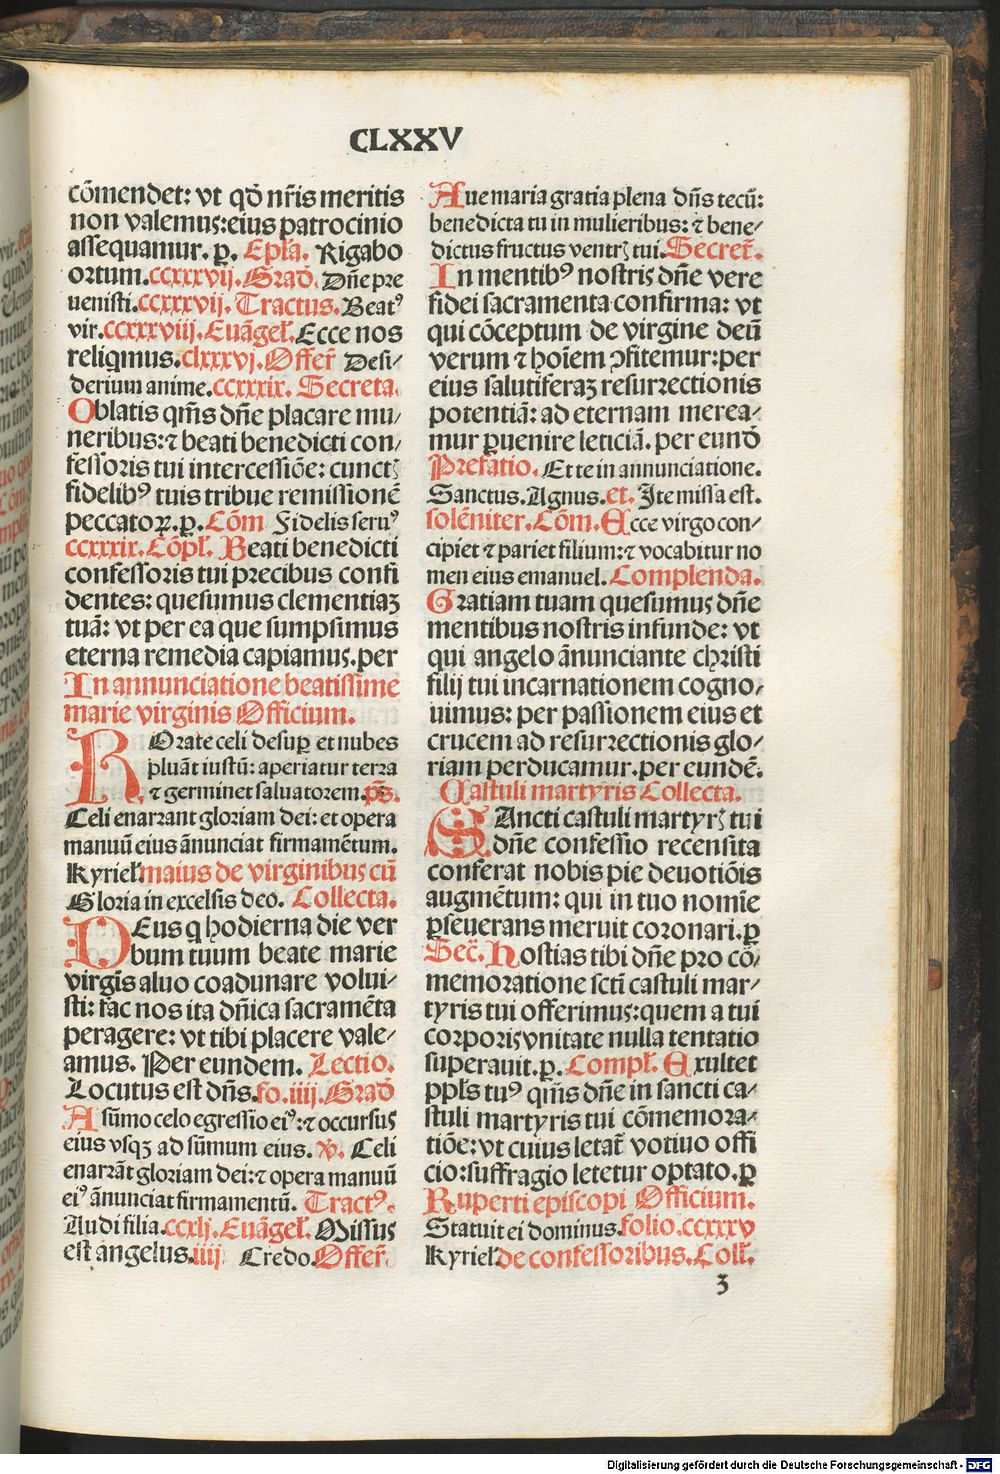 CLXXV
cōmendet: vt qđ nr̄is meritis
non valemus: eius patrocinio
assequamur. ꝑ. Epl̄a. Rigabo
ortum. ccxxxvij. Grad̄. Dn̄e pre
uenisti. ccxxxvij. Tractus. Beatꝰ
vir. ccxxxviij. Euāgel̄. Ecce nos
reliqimus. clxxxvj. Offer̄ Desi⸗
derium anime. ccxxxix. Secreta.
Oblatis qm̄s dn̄e placare mu⸗
neribus: ⁊ beati benedicti con⸗
fessoris tui intercessiōe: cunctꝭ
fidelibꝰ tuis tribue remissionē
peccatoꝝ. ꝑ. Cōm Fidelis seruꝰ
ccxxxix. Cōpl̄. Beati benedicti
confessoris tui precibus confi
dentes: quesumus clementiaꝫ
tuā: vt per ea que sumpsimus
eterna remedia capiamus. per
In annunciatione beatissime
marie virginis Officium.
ROrate celi desuꝑ et nubes
pluāt iustū: aperiatur terra
⁊ germinet saluatorem. ps̄.
Celi enarrant gloriam dei: et opera
manuū eius ānunciat firmamētum.
Kyriel̄. maius de virginibus cū
Gloria in excelsis deo. Collecta.
DEus q hodierna die ver
bum tuum beate marie
virgīs aluo coadunare volui⸗
sti: fac nos ita dn̄ica sacramēta
peragere: vt tibi placere vale⸗
amus. Per eundem. Lectio.
Locutus est dn̄s. fo. iiij. Grad̄
A sūmo celo egressio eiꝰ: ⁊ occursus
eius vsqꝫ ad sūmum eius. ℣. Celi
enarrāt gloriam dei: ⁊ opera manuū
eiꝰ ānunciat firmamentū. Tractꝰ.
Audi filia. ccxlj. Euāgel̄. Missus
est angelus. iiij Credo. Offer̄.
Aue maria gratia plena dn̄s tecū:
benedicta tu in mulieribus: ⁊ bene⸗
dictus fructus ventrꝭ tui. Secret̄.
In mentibꝰ nostris dn̄e vere
fidei sacramenta confirma: vt
qui cōceptum de virgine deū
verum ⁊ hoīem ꝯfitemur: per
eius salutiferaꝫ resurrectionis
potentiā: ad eternam merea⸗
mur ꝑuenire leticiā. per eund̄
Prefatio. Et te in annunciatione.
Sanctus. Agnus. et. Ite missa est.
solēniter. Cōm. Ecce virgo con⸗
cipiet ⁊ pariet filium: ⁊ vocabitur no
men eius emanuel. Complenda.
Gratiam tuam quesumus dn̄e
mentibus nostris infunde: vt
qui angelo ānunciante christi
filij tui incarnationem cogno⸗
uimus: per passionem eius et
crucem ad resurrectionis glo⸗
riam perducamur. per eundē.
Castuli martyris Collecta.
SAncti castuli martyrꝭ tui
dn̄e confessio recensita
conferat nobis pie deuotiōis
augmētum: qui in tuo nomīe
ꝑseuerans meruit coronari. ꝑ
Sec̄. Hostias tibi dn̄e pro cō⸗
memoratione sctī castuli mar⸗
tyris tui offerimus: quem a tui
corporis vnitate nulla tentatio
superauit. ꝑ. Compl̄. Exultet
ppl̄s tuꝰ qm̄s dn̄e in sancti ca⸗
stuli martyris tui cōmemora⸗
tiōe: vt cuius letat̄ votiuo offi
cio: suffragio letetur optato. ꝑ
Ruperti episcopi Officium.
Statuit ei dominus. folio. ccxxxv
Kyriel̄. de confessoribus. Coll̄.
ʒ
Digitalisierung gefördert durch die Deutsche Forschungsgemeinschaft - DFG